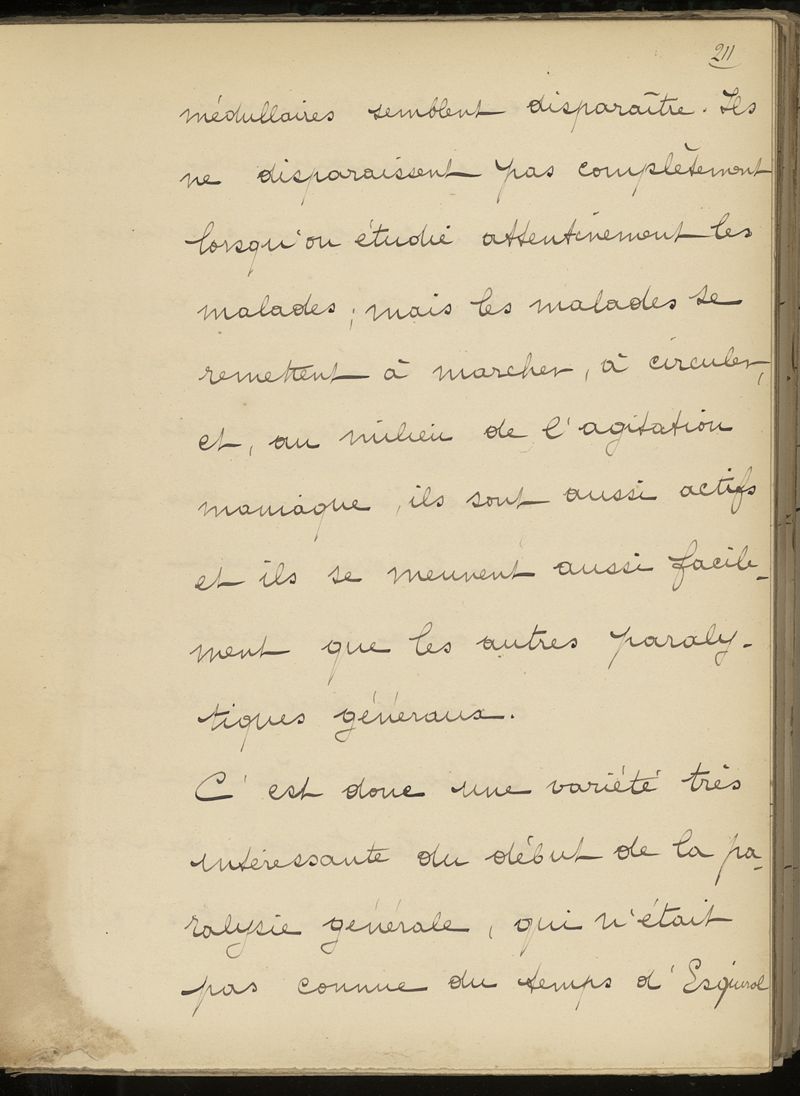 211
médullaires semblent disparaître. Ils
ne disparaissent pas complètement
lorsqu'on étudie attentivement les
malades ; mais les malades se
remettent à marcher, à circuler,
et, au milieu de l'agitation
maniaque, ils sont aussi actifs
et ils se meuvent aussi facile-
ment que les autres paraly-
tiques généraux.
C'est donc une variété très
intéressante du début de la pa-
ralysie générale, qui n'était
pas connue du temps d'Esquirol